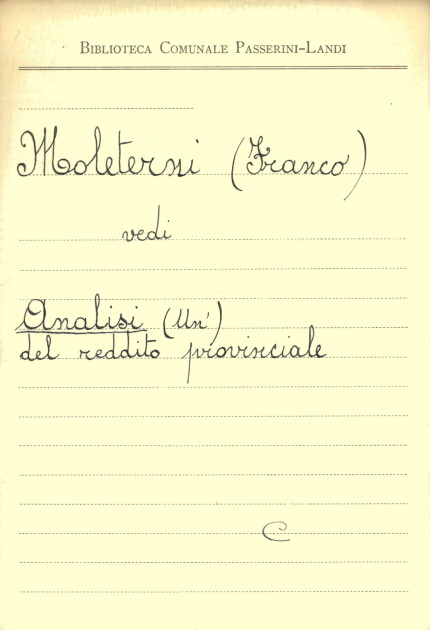 BIBLIOTECA COMUNALE PASSERINI-LANDI
Moleterni (Franco)
vedi
Analisi (Un')
del reddito provinciale
C